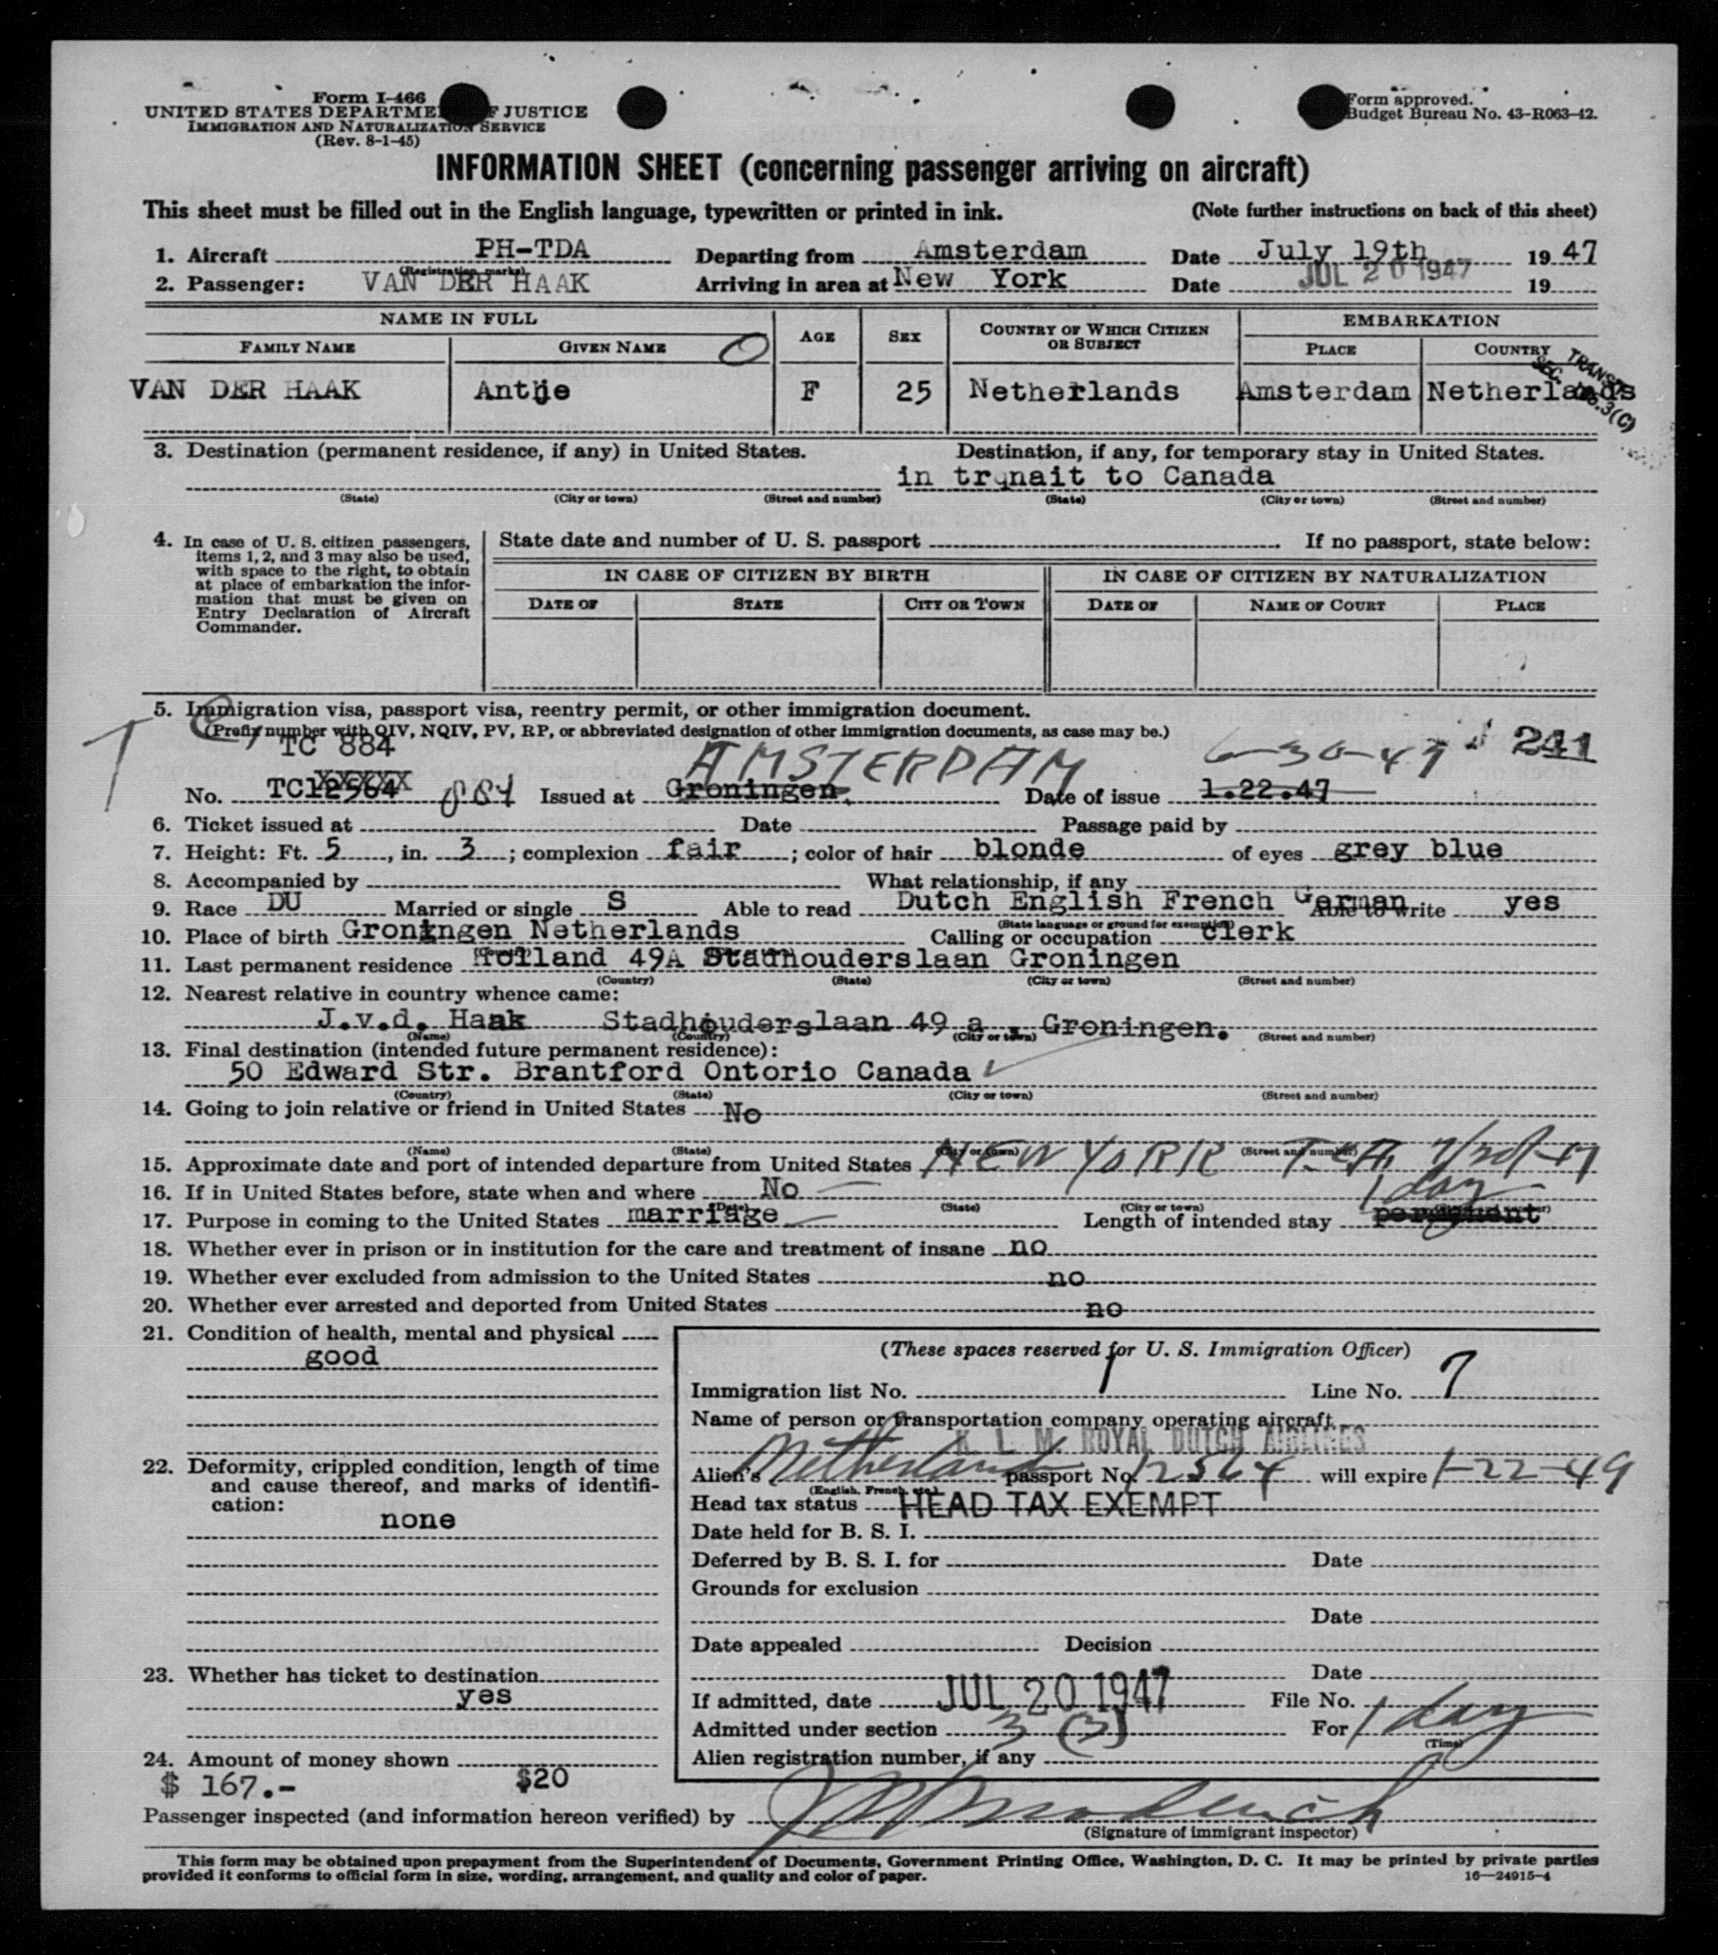 Form I-466
UNITED STATES DEPARTMENT OF JUSTICE
IMMIGRATION AND NATURALIZATION SERVICE
(Rev. 8-1-45)
Form approved.
Budget Bureau No. 43-R063-42.
INFORMATION SHEET (concerning passenger arriving on aircraft)
This sheet must be filled out in the English language, typewritten or printed in ink. (Note further instructions on back of this sheet)
1. Aircraft PH-TDA Departing from Amsterdam Date July 19th 19 47
(Registration marks)
2. Passenger: VAN DER HAAK Arriving in area at New York Date JUL 20 1947 19
NAME IN FULL AGE SEX COUNTRY OF WHICH CITIZEN OR SUBJECT EMBARKATION
FAMILY NAME GIVEN NAME PLACE COUNTRY
TRANSIT
SEC. 3(C)
VAN DER HAAK Antje F 25 Netherlands Amsterdam Netherlands
3. Destination (permanent residence, if any) in United States. Destination, if any, for temporary stay in United States.
in trqnait to Canada
(State) (City or town) (Street and number) (State) (City or town) (Street and number)
4. In case of U. S. citizen passengers, items 1, 2, and 3 may also be used, with space to the right, to obtain at place of embarkation the information that must be given on Entry Declaration of Aircraft Commander.
State date and number of U. S. passport . If no passport, state below:
IN CASE OF CITIZEN BY BIRTH IN CASE OF CITIZEN BY NATURALIZATION
DATE OF STATE CITY OR TOWN DATE OF NAME OF COURT PLACE
5. Immigration visa, passport visa, reentry permit, or other immigration document.
(Prefix number with QIV, NQIV, PV, RP, or abbreviated designation of other immigration documents, as case may be.)
TC 884 AMSTERDAM 6-30-47 241
No. TC12564 884 Issued at Groningen. Date of issue 1.22.47
6. Ticket issued at Date Passage paid by
7. Height: Ft. 5, in. 3; complexion fair; color of hair blonde of eyes grey blue
8. Accompanied by What relationship, if any
9. Race DU Married or single S Able to read Dutch English French German Able to write yes
(State language or ground for exemption)
10. Place of birth Groningen Netherlands Calling or occupation clerk
11. Last permanent residence Holland 49A Stadhouderslaan Groningen
(Country) (State) (City or town) (Street and number)
12. Nearest relative in country whence came:
J.v.d. Haak Stadhouderslaan 49 a , Groningen.
(Name) (Country) (City or town) (Street and number)
13. Final destination (intended future permanent residence):
50 Edward Str. Brantford Ontorio Canada
(Country) (State) (City or town) (Street and number)
14. Going to join relative or friend in United States No
(Name) (State) (City or town) (Street and number)
15. Approximate date and port of intended departure from United States NEW YORK
16. If in United States before, state when and where No 1 day
(Date) (State) (City or town)
17. Purpose in coming to the United States marriage Length of intended stay permanent
18. Whether ever in prison or in institution for the care and treatment of insane no
19. Whether ever excluded from admission to the United States no
20. Whether ever arrested and deported from United States no
21. Condition of health, mental and physical
good
22. Deformity, crippled condition, length of time and cause thereof, and marks of identification:
none
23. Whether has ticket to destination
yes
24. Amount of money shown
$ 167.- $20
(These spaces reserved for U. S. Immigration Officer)
Immigration list No. 1 Line No. 7
Name of person or transportation company operating aircraft
K L M ROYAL DUTCH AIRLINES
Alien's Netherlands passport No. 12564 will expire 1-22-49
(English, French, etc.)
Head tax status HEAD TAX EXEMPT
Date held for B. S. I.
Deferred by B. S. I. for Date
Grounds for exclusion
Date
Date appealed Decision
Date
If admitted, date JUL 20 1947 File No.
Admitted under section 3 (3) For 1 day
(Time)
Alien registration number, if any
Passenger inspected (and information hereon verified) by
(Signature of immigrant inspector)
This form may be obtained upon prepayment from the Superintendent of Documents, Government Printing Office, Washington, D. C. It may be printed by private parties
provided it conforms to official form in size, wording, arrangement, and quality and color of paper. 16—24915-4